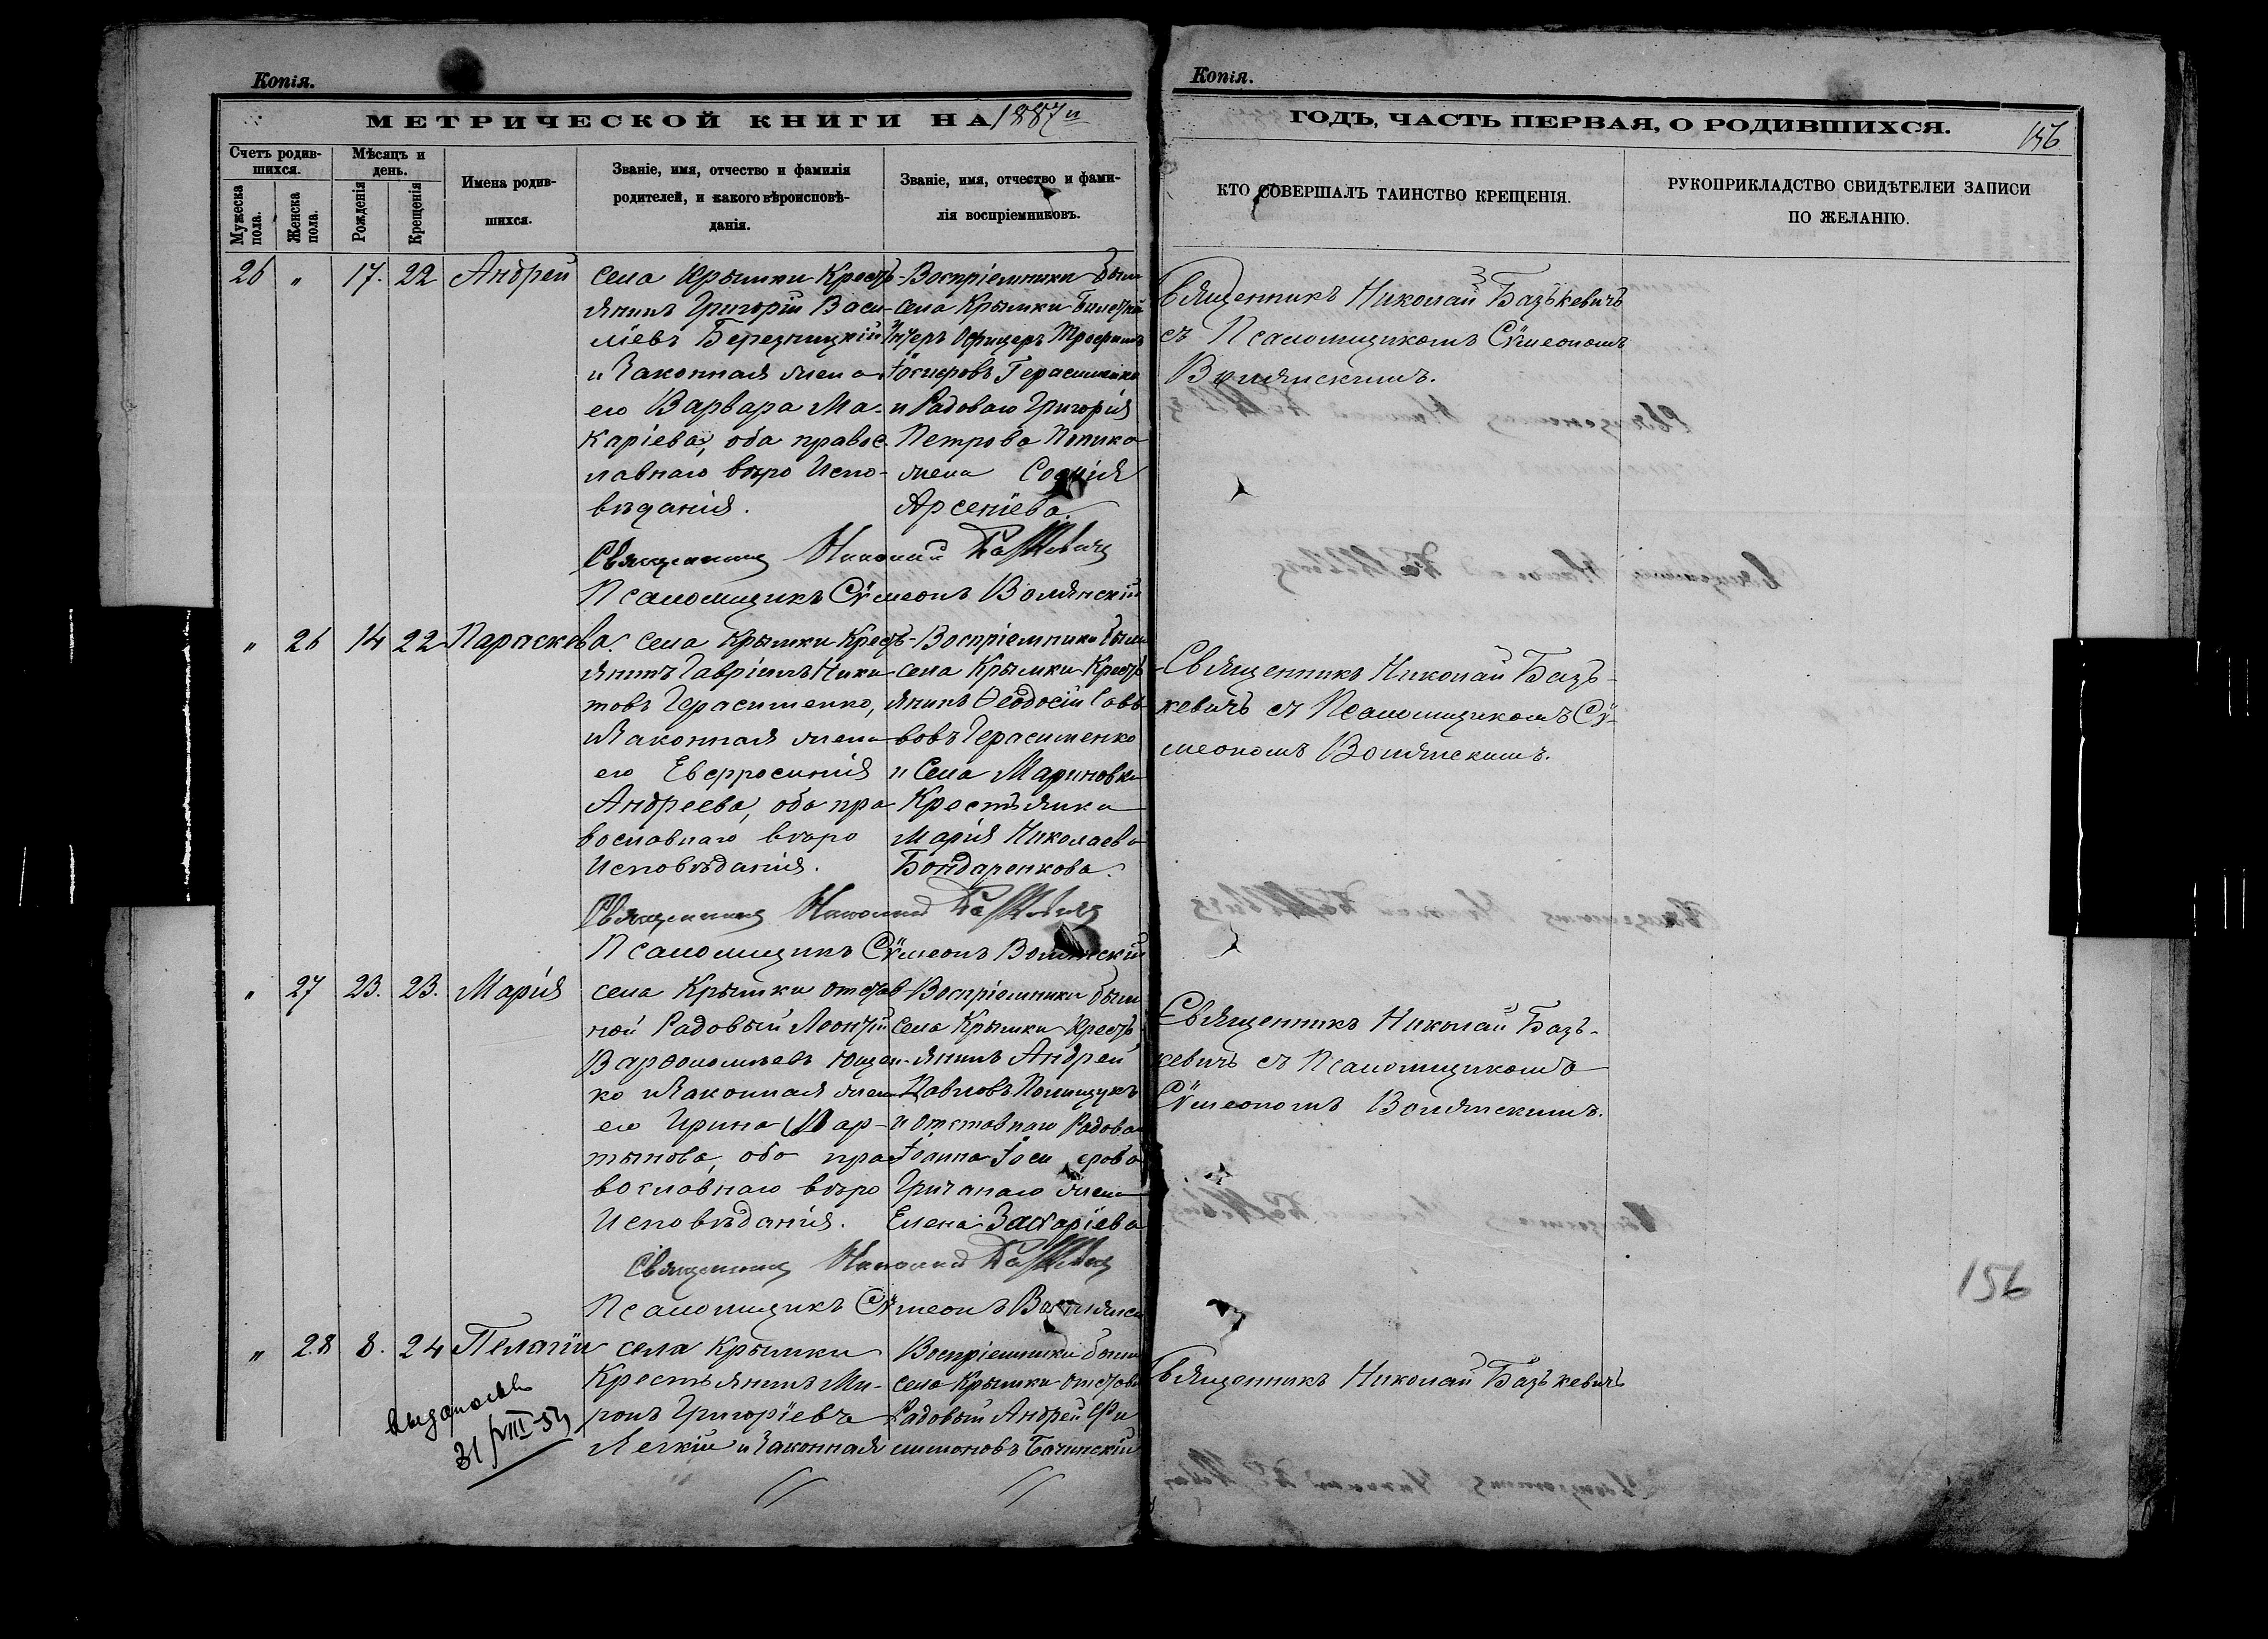 Копія.
МЕТРИЧЕСКОЙ КНИГИ НА 1887й
Счетъ родив-
шихся.
Мужеска
пола.
Женска
пола.
Мѣсяцъ и
день.
Рожденія
Крещенія
Имена родив-
шихся.
Званіе, имя, отчество и фамилія
родителей, и какого вѣроисповѣ-
данія.
Званіе, имя, отчество и фами-
лія воспріемниковъ.
26 " 17. 22 Андрей
села Крымки Кресть-
янинъ Григорій Васи-
ліевъ Березницкій
и Законная жена
его Варвара Ма-
каріева, оба правос-
лавнаго вѣро Испо-
вѣданія.
Воспріемники были
села Крымки Билетный
Унтеръ Офицеръ Трофимъ
Іосифовъ Герасименко
и Радоваго Григорія
Петрова Попика
жена Софія
Арсеніева.
Священникъ Николай Базкевичъ
Псаломщикъ Сѵмеонъ Волянскій
" 26 14 22 Параскева.
села Крымки Кресть-
янинъ Гавріилъ Ники-
товъ Герасименко,
и Законная жена
его Евфросинія
Андреева, оба пра
вославнаго вѣро
Исповѣданія.
Воспріемники были
села Крымки Кресть
янинъ Ѳеодосій Савв-
вовъ Герасименко
и Села Мариновки
Крестьянка
Марія Николаева
Бондаренкова.
Священникъ Николай Базкевичъ
Псаломщикъ Сѵмеонъ Волянскій
" 27 23. 23. Марія
села Крымки отстав
ной Радовый Леонтій
Варѳоломѣевъ Ющен-
ко и Законная жена
его Ирина Мар-
тынова, оба пра
вославнаго вѣро
Исповѣданія.
Воспріемники были
Села Крымки Кресть-
янинъ Андрей
Павловъ Полищукъ
и отставнаго Радова
Іоанна Іоси фова
Гричанаго жена
Елена Захаріева
Священникъ Николай Базкевичъ
Псаломщикъ Сѵмеонъ Волянск
" 28 8. 24 Пелагіи
села Крымки
Крестьянинъ Ми-
ронъ Григоріевъ
Легкій и Законная
Воспріемники были
села Крымки отстав
Радовый Андрей Фи
лимоновъ Бачинскій
31/VIII-53
Копія.
ГОДЪ, ЧАСТЬ ПЕРВАЯ, О РОДИВШИХСЯ.
156
КТО СОВЕРШАЛЪ ТАИНСТВО КРЕЩЕНІЯ.
РУКОПРИКЛАДСТВО СВИДѢТЕЛЕЙ ЗАПИСИ
ПО ЖЕЛАНІЮ.
Священникъ Николай Базькевичъ
съ Псаломщикомъ Сѵмеономъ
Волянскимъ.
Священникъ Николай Базь-
кевичъ съ Псаломщикомъ Сѵ-
меономъ Волянскимъ.
Священникъ Николай Базь-
кевичъ съ Псаломщикомъ
Сѵмеономъ Волянскимъ.
156
Священникъ Николай Базькевичъ